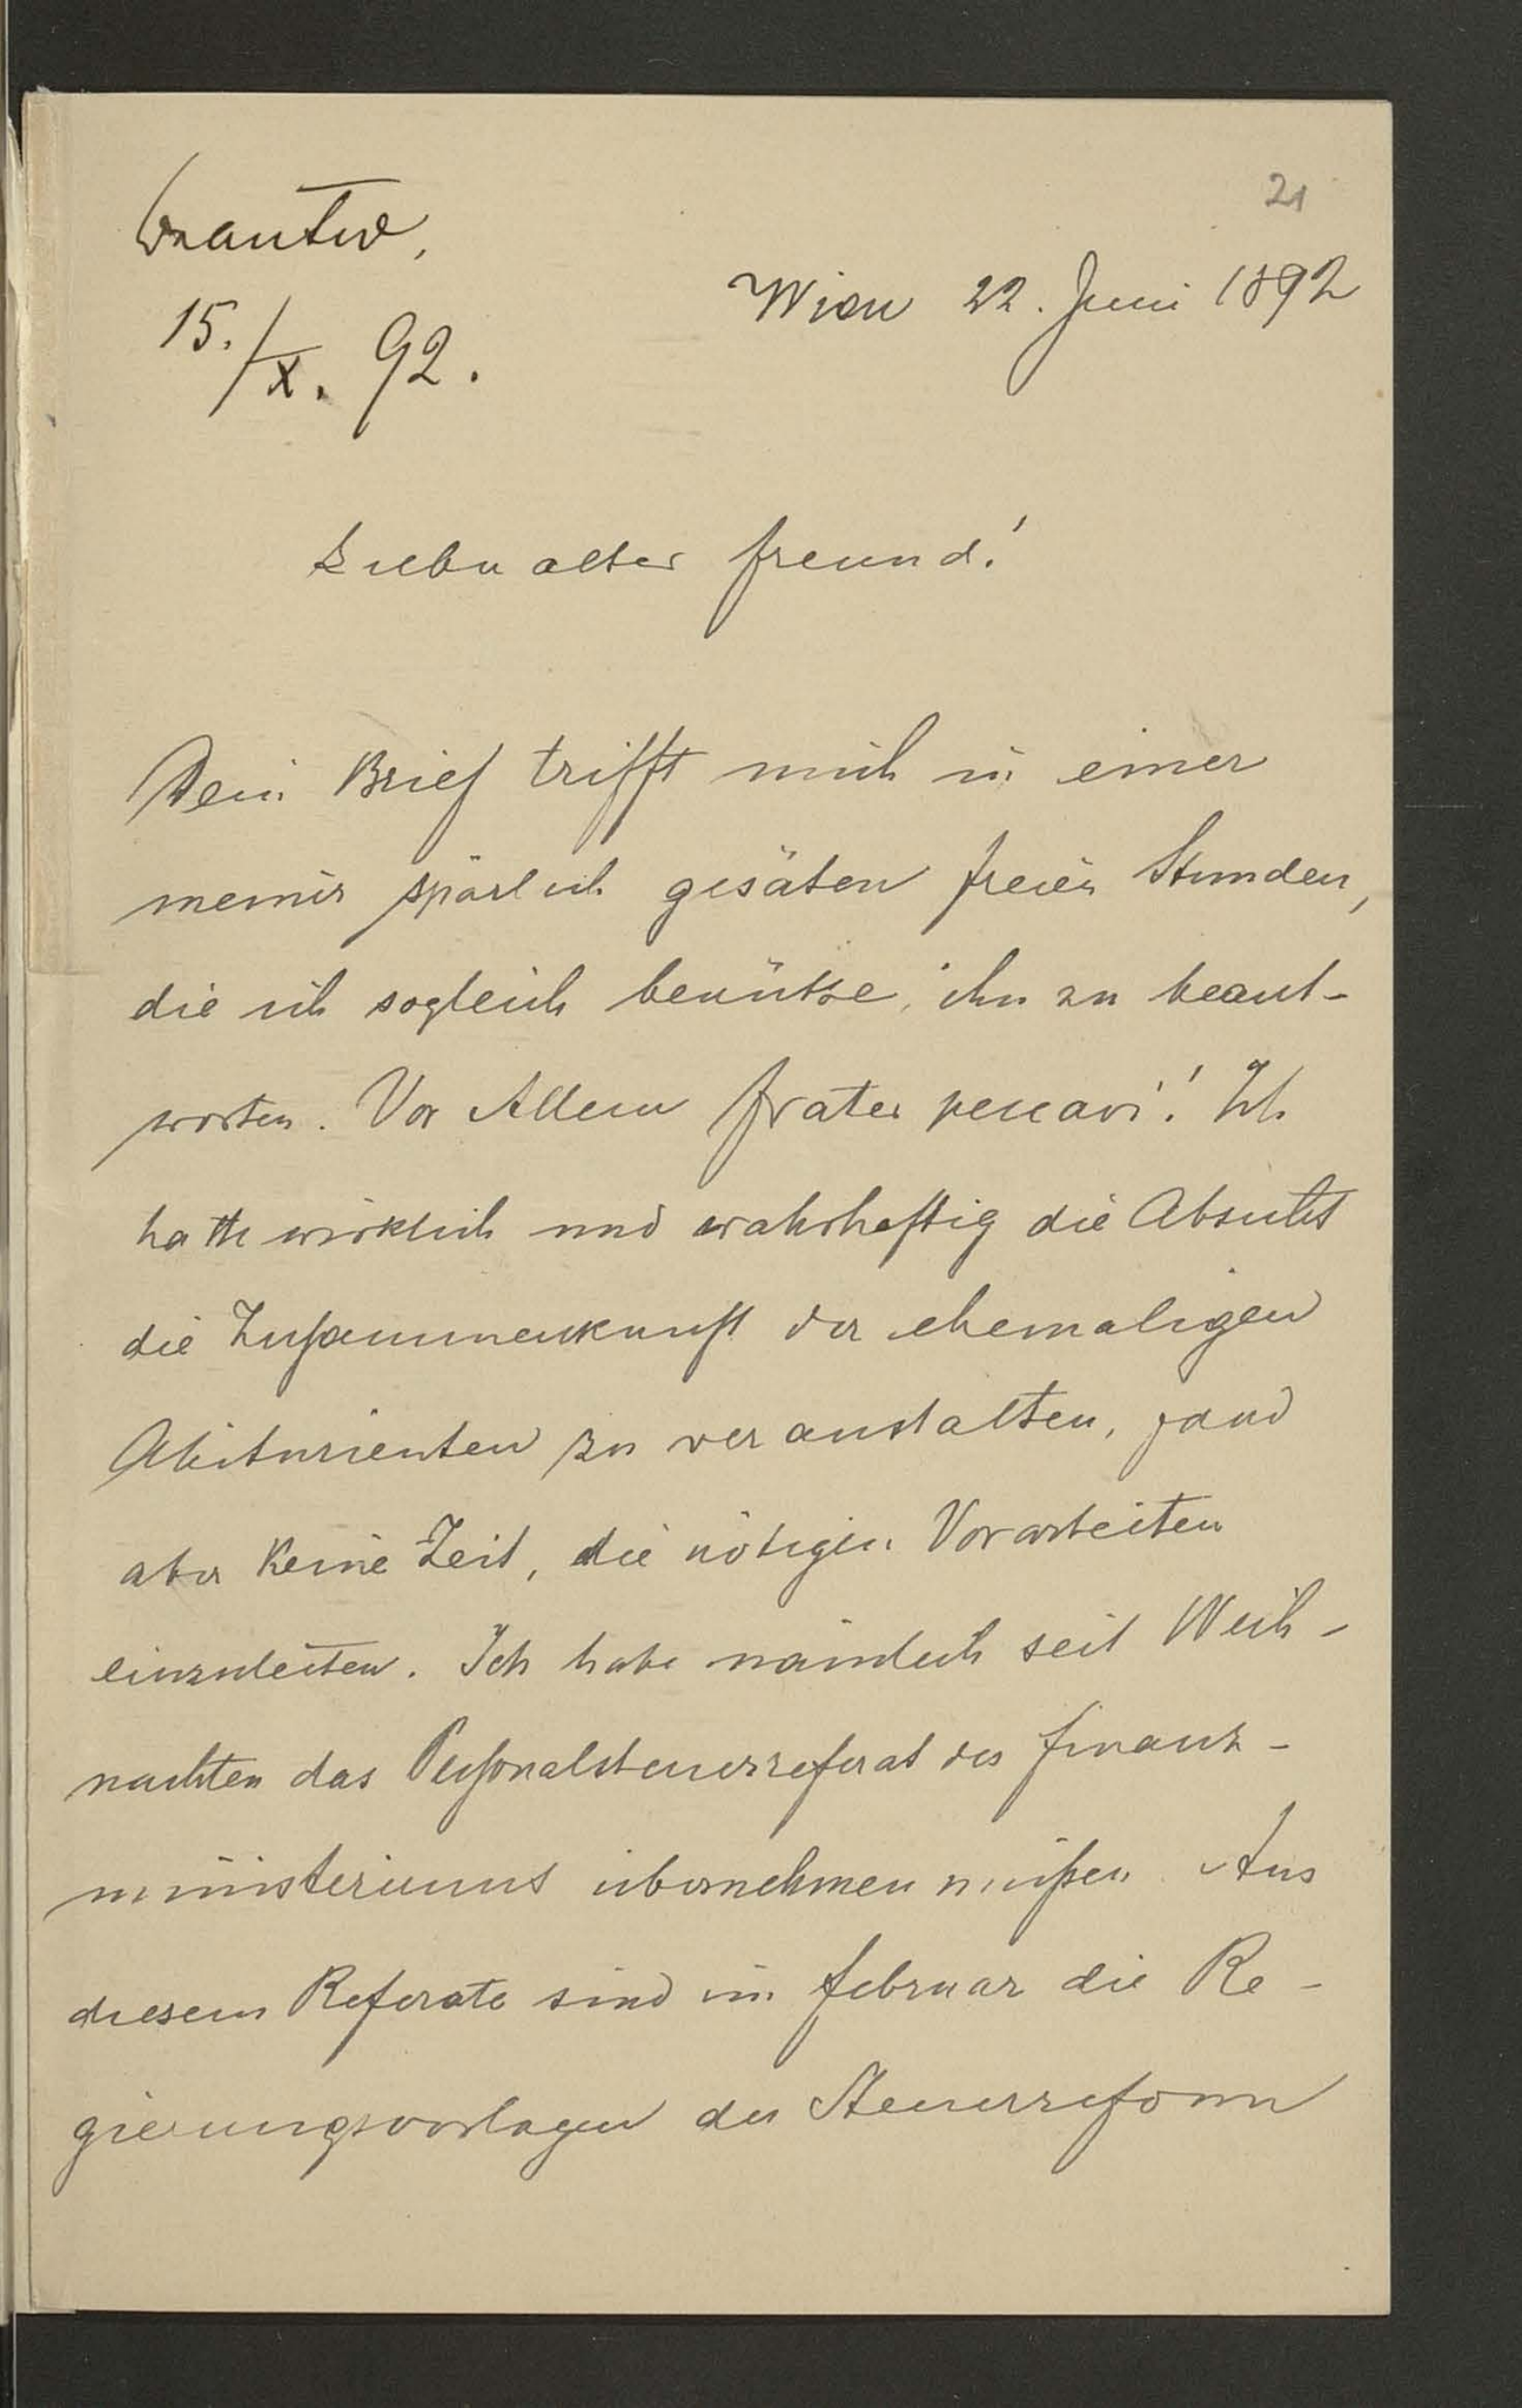 21
beantw.
15./X. 92.
Wien 22. Juni 1892
Lieber alter Freund!
Dein Brief trifft mich in einer
meiner spärlich gesäten freien Stunden,
die ich sogleich benütze, ihn zu beant-
worten. Vor Allem frater peccavi! Ich
hatte wirklich und wahrhaftig die Absicht
die Zusammenkunft der ehemaligen
Abiturienten zu veranstalten, fand
aber keine Zeit, die nötigen Vorarbeiten
einzuleiten. Ich habe nämlich seit Weih-
nachten das Personalsteuerreferat des Finanz-
ministeriums übernehmen müßen. Aus
diesem Referate sind im Februar die Re-
gierungsvorlagen der Steuerreform